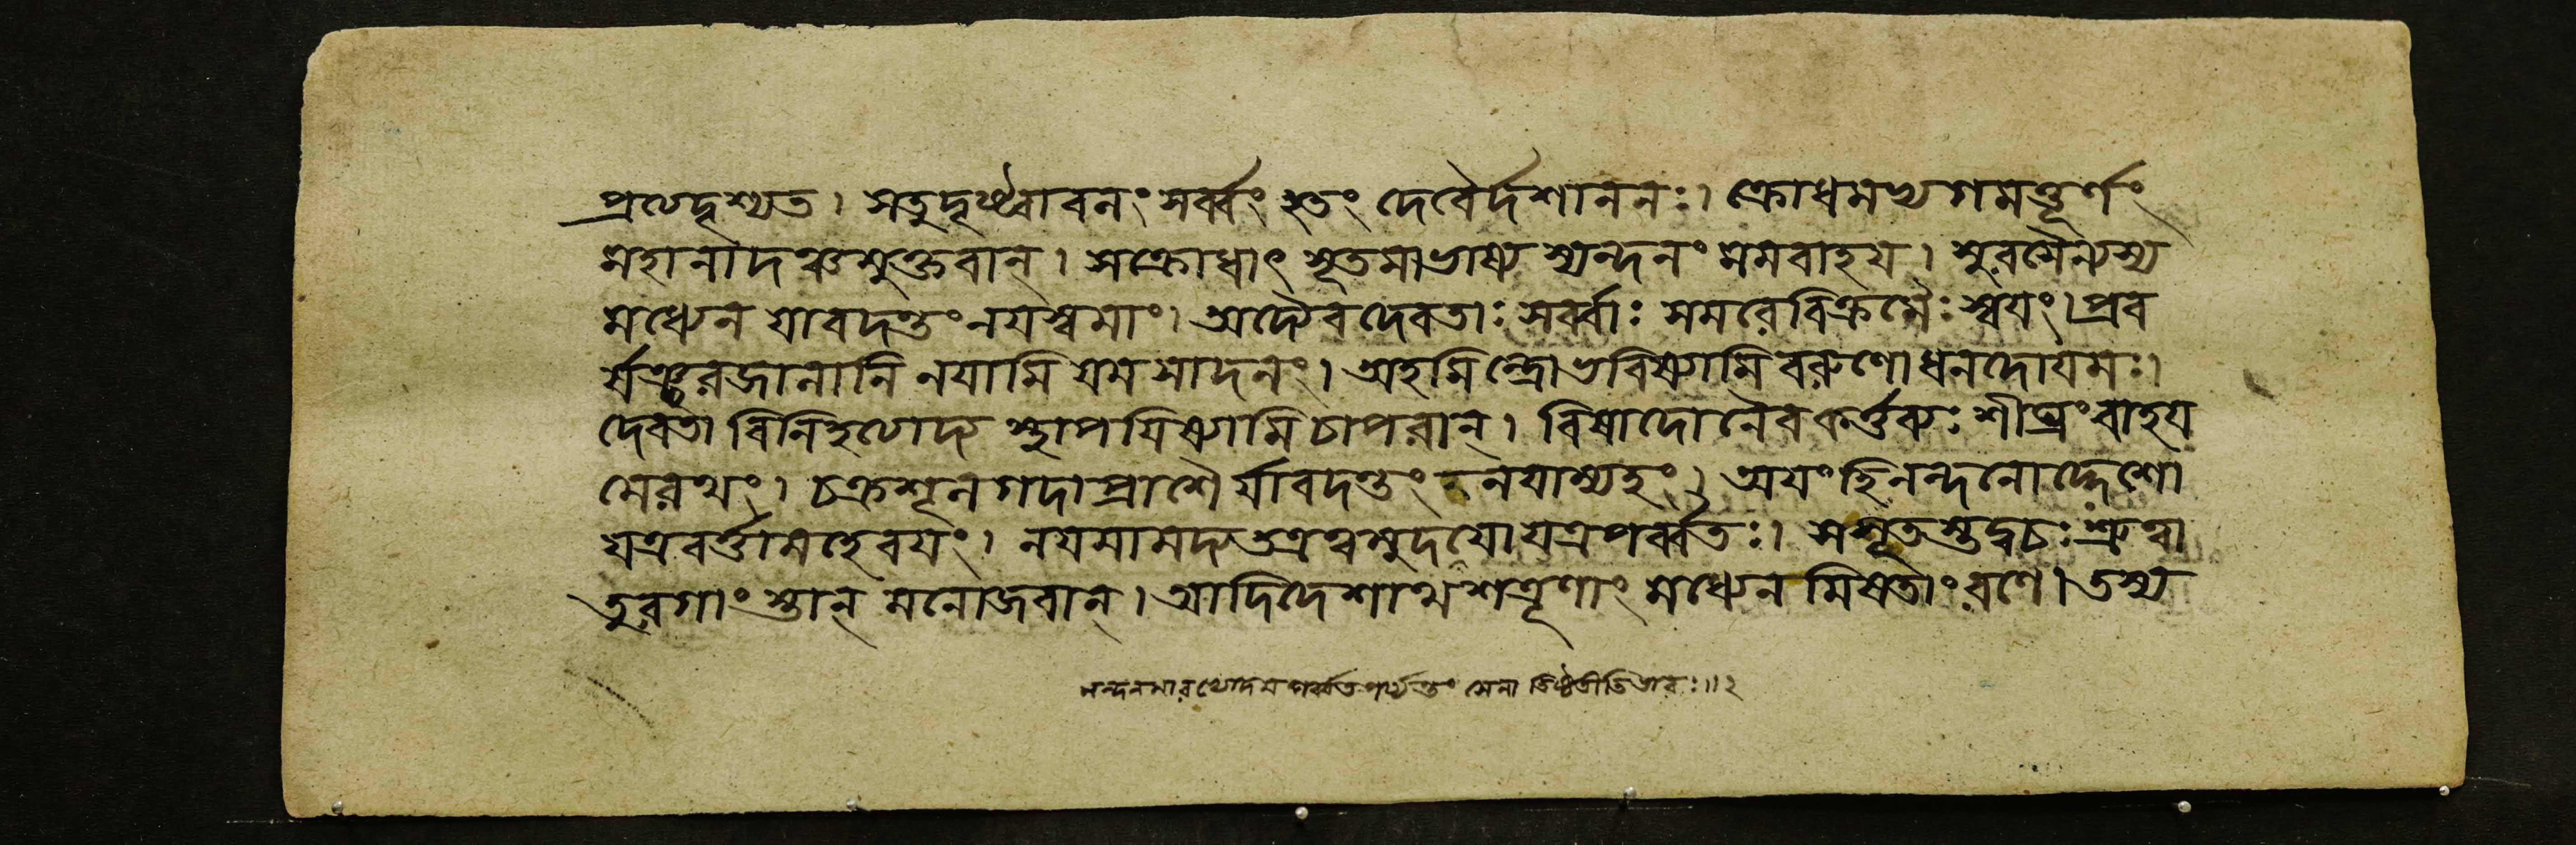 প্রত্যদৃশ্যত। সতুদৃষ্ট্বাবলং সর্ব্বং হতং দেবৈর্দশাননঃ। ক্রোধমভ্যগমত্তূর্ণং
মহানাদঞ্চমুক্তবান্। সক্রোধাৎ সূতমাভাষ্য স্যন্দনং মেমবাহয। সুরসৈন্যস্য
মধ্যেন যাবদন্তংনযস্বমাং। অদ্যৈবদেবতাঃ সর্ব্বাঃ সমরেবিক্রমৈঃ স্বযং। প্রব
র্নযামি যমসাদনং। অহমিন্দ্রোভবিষ্যামি বরুণোধনদোযমঃ।
দেবতা বিনিহত্যাদ্য স্থাপযিষ্যামি চাপরান্। বিষাদোনৈবকর্ত্তব্যঃ শীঘ্রংবাহয
মেরথং। চক্রশূলগদাপ্রাশৈর্যাবদন্তং নযাম্যহং। অযংহিনন্দনোদ্দেশো
যত্রবর্ত্তামহেবযং। নযমামদ্যতত্রত্বমুদযোযত্রপর্ব্বতঃ। সসূতস্তদ্বচঃশ্রুত্বা
তুরগাংস্তান্ মনোজবান্। আদিদেশাথশত্রূণাং মধ্যেন মিষতাংরণে। তস্য
নন্দনমারভ্যোদযপর্ব্বতপর্য্যন্তং সেনা তিষ্ঠতীতিভাবঃ॥২